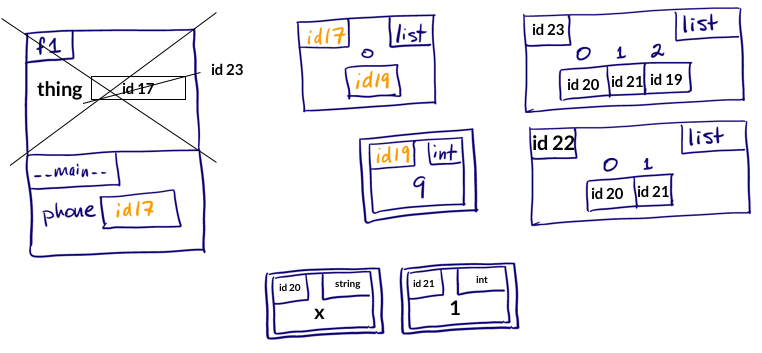 f1
thing id 17 id 23
--main--
phone id17
id17 list
0
id19
id19 int
9
id 23 list
0 1 2
id 20 id 21 id 19
id 22 list
0 1
id 20 id 21
id 20 string
x
id 21 int
1